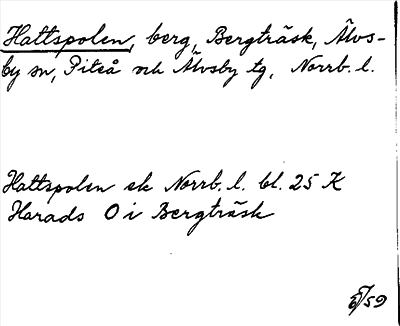 Hattspolen, berg, Bergträsk, Älvs-
by sn, Piteå och Älvsby tg, Norrb. l.
Hattspolen ek Norrb. l. bl. 25 K
Harads O i Bergträsk
/59